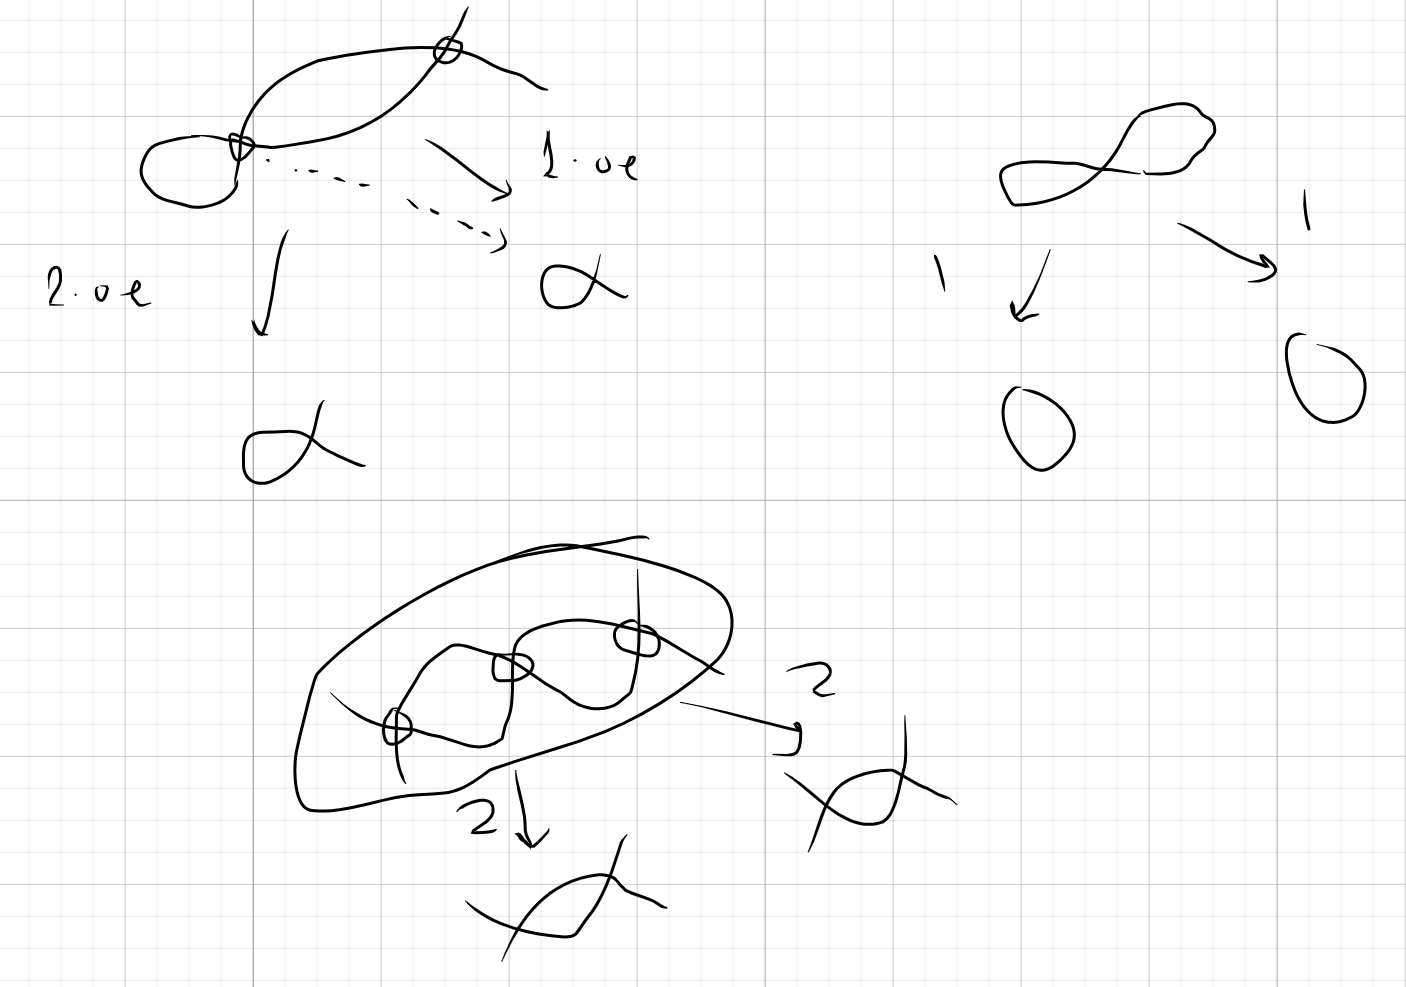 1. oe
2. oe
1
1
2
2